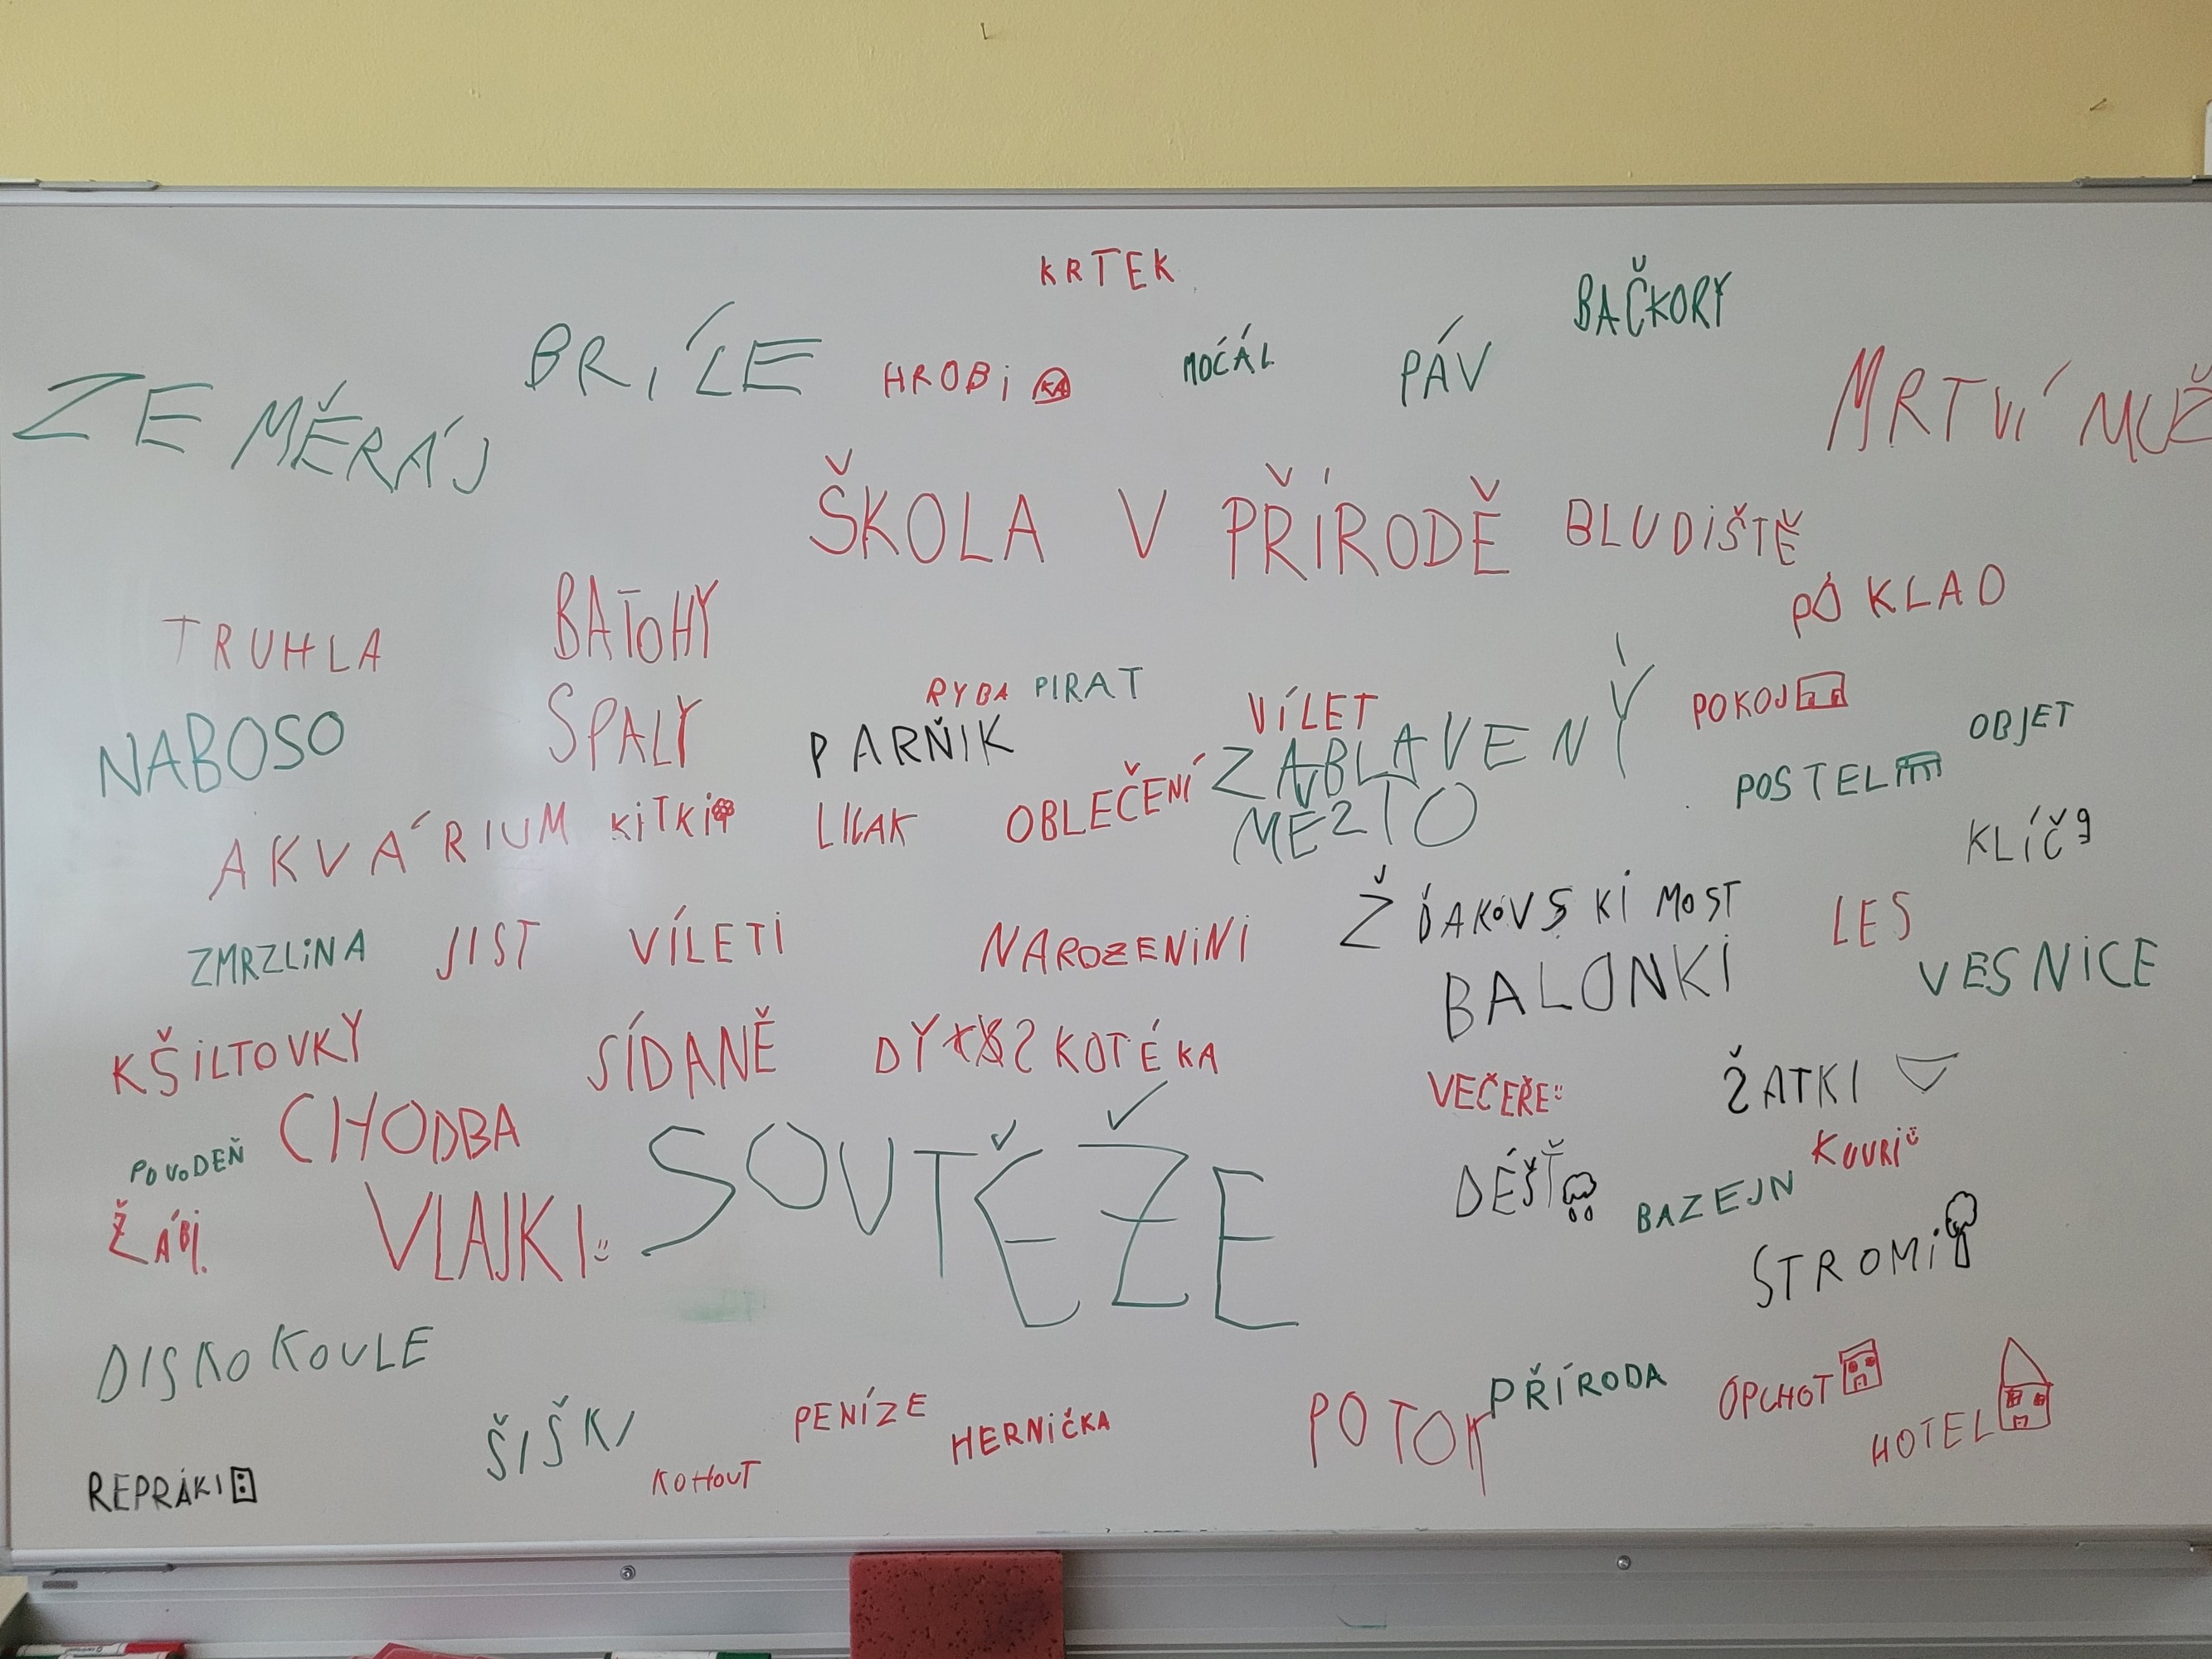 KRTEK
BAČKORY
BRÍZE
HROBI
MOČÁL
PÁV
ZEMĚRÁJ
MRTVÍ MUŽ
ŠKOLA V PŘÍRODĚ
BLUDIŠTĚ
POKLAD
TRUHLA
BATOHY
RYBA
PIRAT
VÍLET
POKOJ
OBJET
NABOSO
SPALY
PARŇIK
ZABLAVENÝ
MEZTO
POSTEL
AKVÁRIUM
KITKI
OBLEČENÍ
KLÍČ
ZMRZLINA
JIST
VÍLETI
NAROZENINI
ŽĎAKOVSKÍ MOST
LES
BALONKI
VESNICE
KŠILTOVKY
SÍDANĚ
DYSKOTÉKA
VEČEŘE
ŽATKI
CHODBA
POVODEŇ
SOUTĚŽE
KUURI
DÉŠŤ
BAZEJN
ŽÁBI
VLAJKI
STROMI
DISKOKOULE
PENÍZE
HERNIČKA
POTOK
PŘÍRODA
OPCHOT
HOTEL
ŠIŠKI
KOHOUT
REPRÁKI